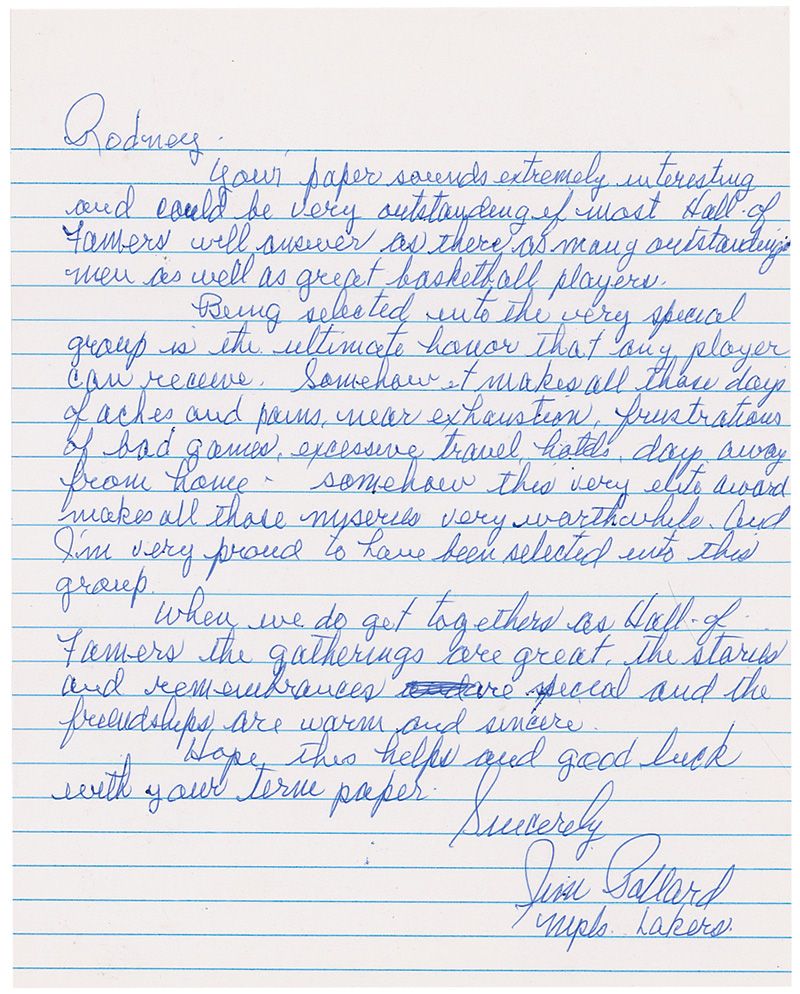 Rodney.
Your paper sounds extremely interesting
and could be very outstanding if most Hall-of
Famers will answer as there as many outstanding
men as well as great basketball players.
Being selected into the very special
group is the ultimate honor that any player
can receive. Somehow it makes all those days
of aches and pains, near exhaustion, frustrations
of bad games, excessive travel, hotels, days away
from home - somehow this very elite award
makes all those myseries very worthwhile. And
I'm very proud to have been selected into this
group.
When we do get togethers as Hall-of
Famers the gatherings are great, the stories
and remembrances are special and the
friendships are warm and sincere.
Hope this helps and good luck
with your term paper.
Sincerely
Jim Pollard
Mpls. Lakers.